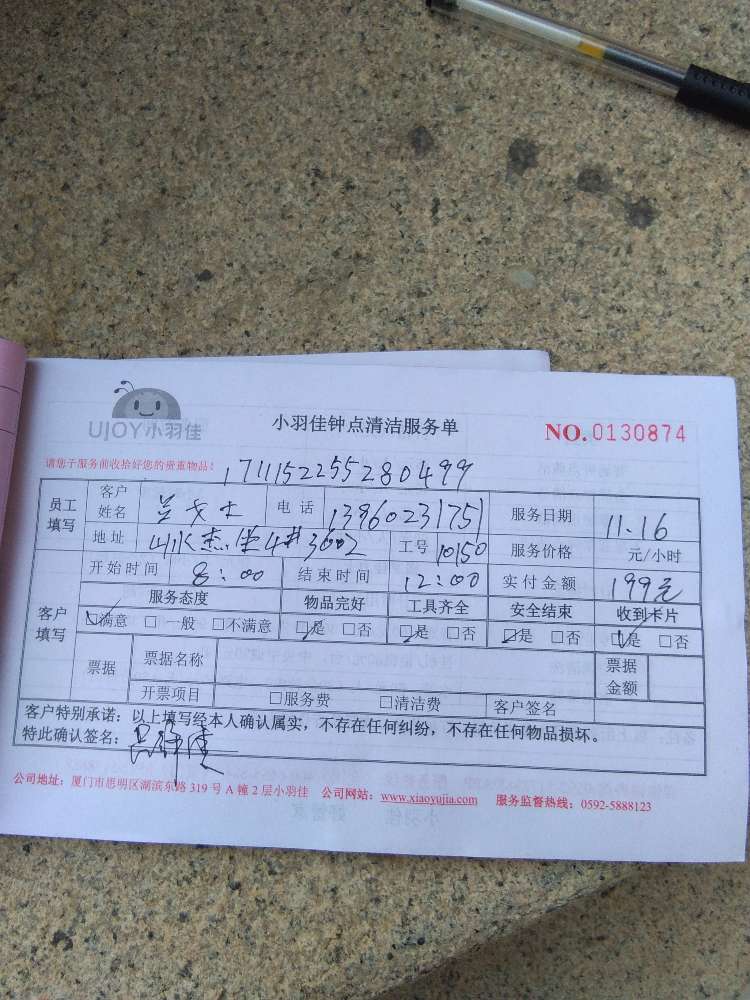 UJOY小羽佳
小羽佳钟点清洁服务单
NO. 0130874
请您于服务前收拾好您的贵重物品!
1711152255280499
员工填写 客户姓名 电话 13960231751 服务日期 11.16
地址 4#3602 工号 10150 服务价格 元/小时
客户填写 开始时间 8:00 结束时间 12:00 实付金额 199元
服务态度 物品完好 工具齐全 安全结束 收到卡片
☑满意 □一般 □不满意 ☑是 □否 ☑是 □否 ☑是 □否 ☑是 □否
票据 票据名称 票据金额
开票项目 □服务费 □清洁费 客户签名
客户特别承诺:以上填写经本人确认属实,不存在任何纠纷,不存在任何物品损坏。
特此确认签名:
公司地址:厦门市思明区湖滨东路 319 号 A 幢 2 层小羽佳 公司网站:www.xiaoyujia.com 服务监督热线:0592-5888123